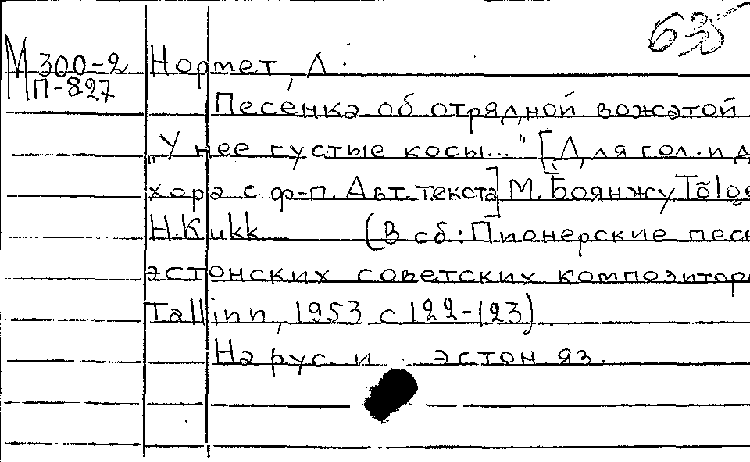 63
М 300-2 Нормет, Л.
П-827
Песенка об отрядной вожатой
„У нее густые косы..." [Для гол. и д
хора с ф-п. Авт. текста] М. Боянжу Tõlge
H. Kukk (В сб.: Пионерские песн
эстонских советских композиторо
Tallinn, 1953 с 122-123).
На рус. и эстон яз.